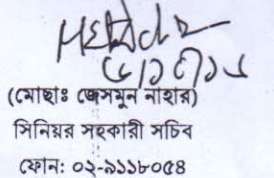 (মোছাঃ জেসমুন নাহার)
সিনিয়র সহকারী সচিব
ফোন: ০২-৯১১৮০৫৪